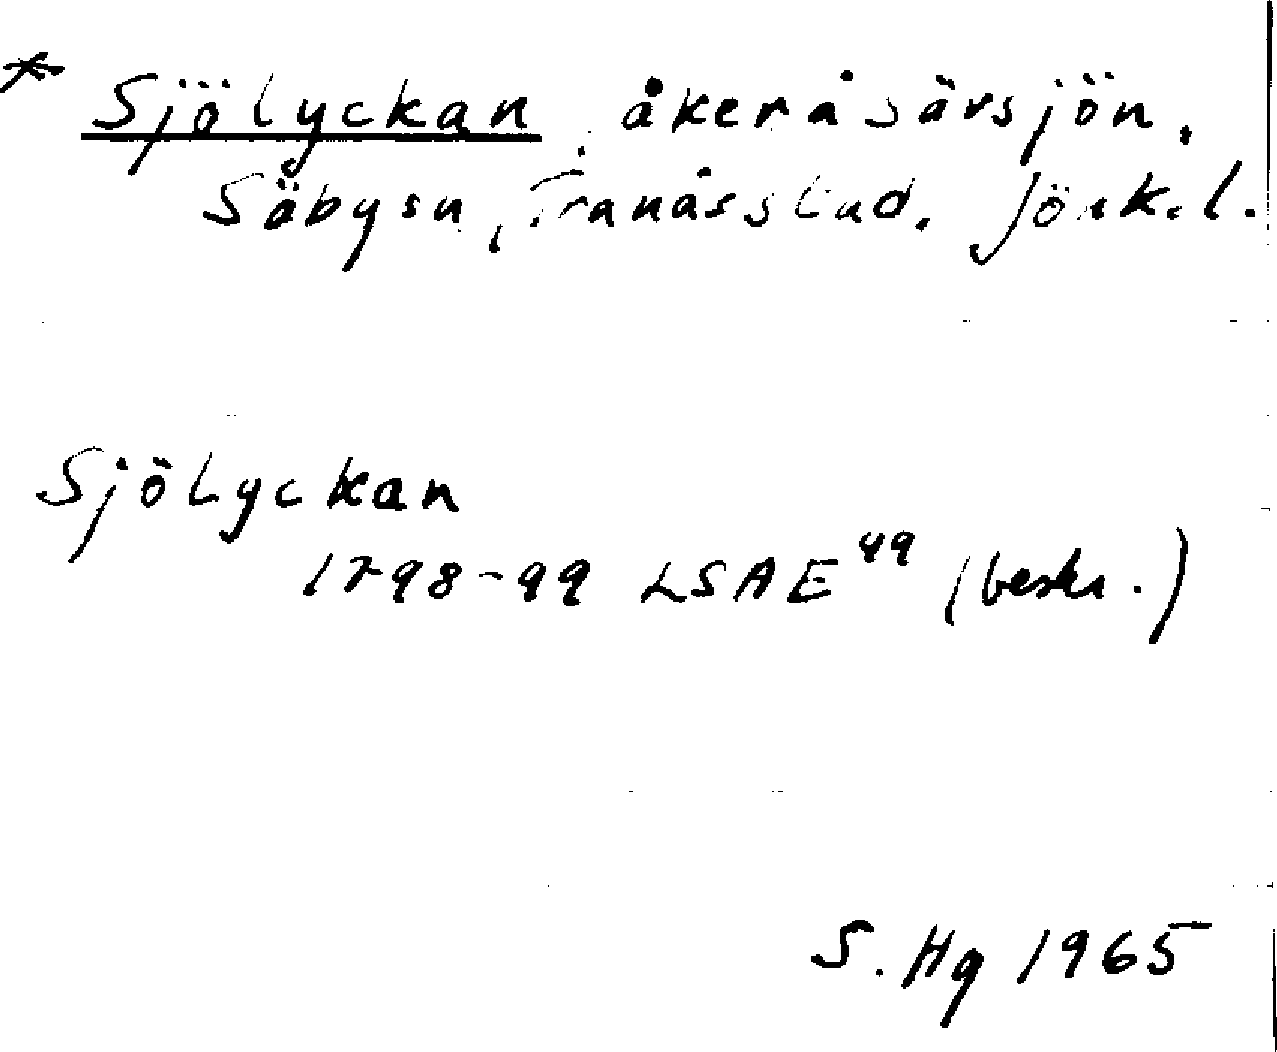 * Sjölyckan, åker å Särsjön,
Säby sn, Tranås stad. Jönk. l.
Sjölyckan
1798-99 LSA E 49 (beskr.)
S. Hg 1965